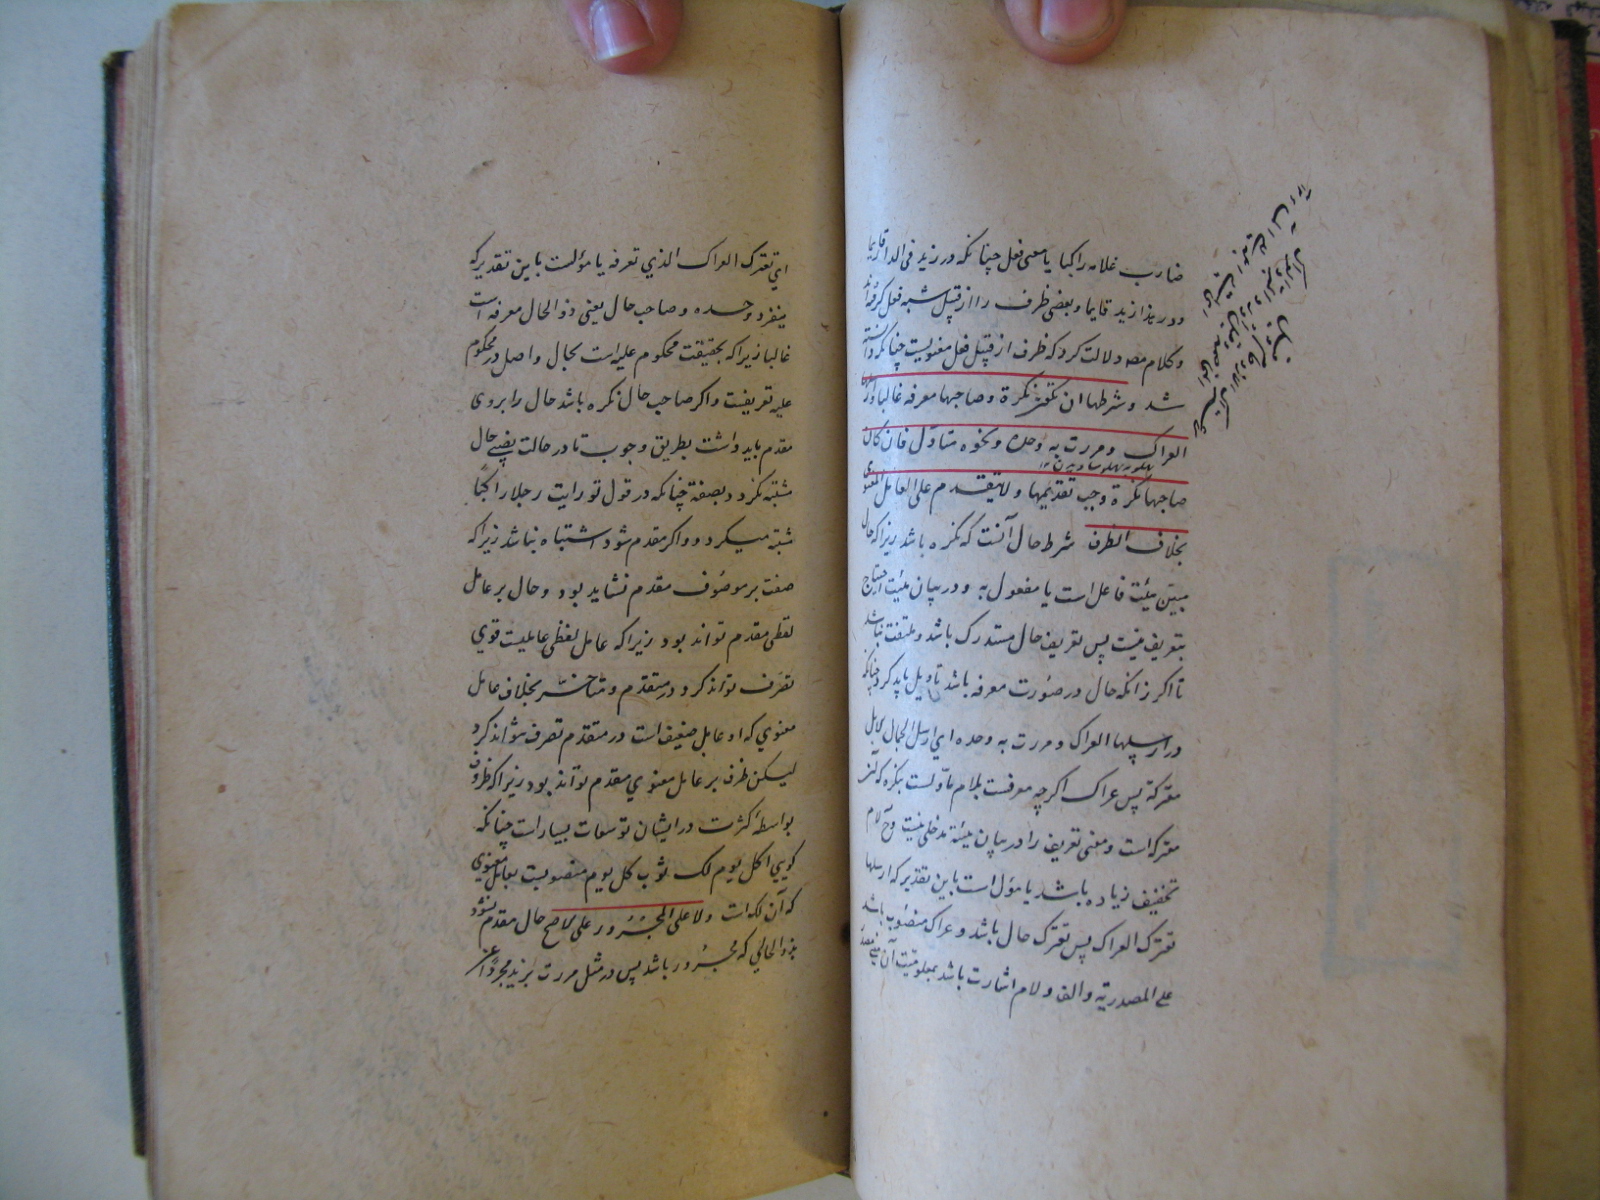 ضارب غلامه راكبا يا معنى فعل چنانكه در زيد فى الدار قايما
و در هذا زيد قايما و بعضى ظرف را از قبيل شبه فعل گرفته اند
و كلام مصه دلالت كرد كه ظرف از قبيل فعل معنويست چنانكه دانسته
شد و شرطها ان تكون نكرة و صاحبها معرفه غالبا و ارسلها
العراك و مررت به وحده و نحوه متاوّل فان كان
صاحبها نكرة وجب تقديمها و لا يتقدم على العامل المعنوى
بخلاف الظرف شرط حال آنست كه نكره باشد زيرا كه حال
مبيّن هيئت فاعل است يا مفعول به و در بيان هيئت احتياج
بتعريف نيست پس تعريف حال مستدرك باشد و ملتفت نباشد
تا اگر زانكه حال در صورت معرفه باشد تاويل بايد كرد چنانكه
در ارسلها العراك و مررت به وحده اي ارسل الجمال لابل
معتركة پس عراك اگرچه معرفست بلام مأولست بنكره كه آن
معتركه است و معنى تعريف را در بيان هيئة مدخلى نيست و ح لام
تخفيف زياده باشد يا مؤل است باين تقدير كه ارسلها
تعترك العراك پس تعترك حال باشد و عراك منصوب باشد
على المصدرية و الف و لام اشارت باشد بمعلوميت آن
اي تعترك العراك الذي تعرفه يا مؤلست باين تقدير كه
ينفرد وحده و صاحب حال يعنى ذو الحال معرفه است
غالبا زيرا كه بحقيقت محكوم عليه است بحال و اصل در محكوم
عليه تعريفست و اگر صاحب حال نكره باشد حال را بروى
مقدم بايد داشت بطريق وجوب تا در حالت نصب حال
مشتبه نگردد بصفة چنانكه در قول تو رايت رجلا راكبًا
مشتبه ميگردد و اگر مقدم شود اشتباه نباشد زيرا كه
صفت بر موصوف مقدم نشايد بود و حال بر عامل
لفظى مقدم تواند بود زيرا كه عامل لفظى عامليست قوي
تصرف تواند كرد در متقدم و متاخر بخلاف عامل
معنوي كه او عامل ضعيف است در متقدم تصرف نتواند كرد
ليكن ظرف بر عامل معنوي مقدم تواند بود زيرا كه ظروف
بواسطه كثرت در ايشان توسعات بسيار است چنانكه
گويي اكل يوم لك ثوب كل يوم منصوبست بعامل معنوي
كه آن لك است و لا على المجرور على الاصح حال مقدم نشود
بر ذو الحالي كه مجرور باشد پس در مثل مررت بزيد مجردًا عن